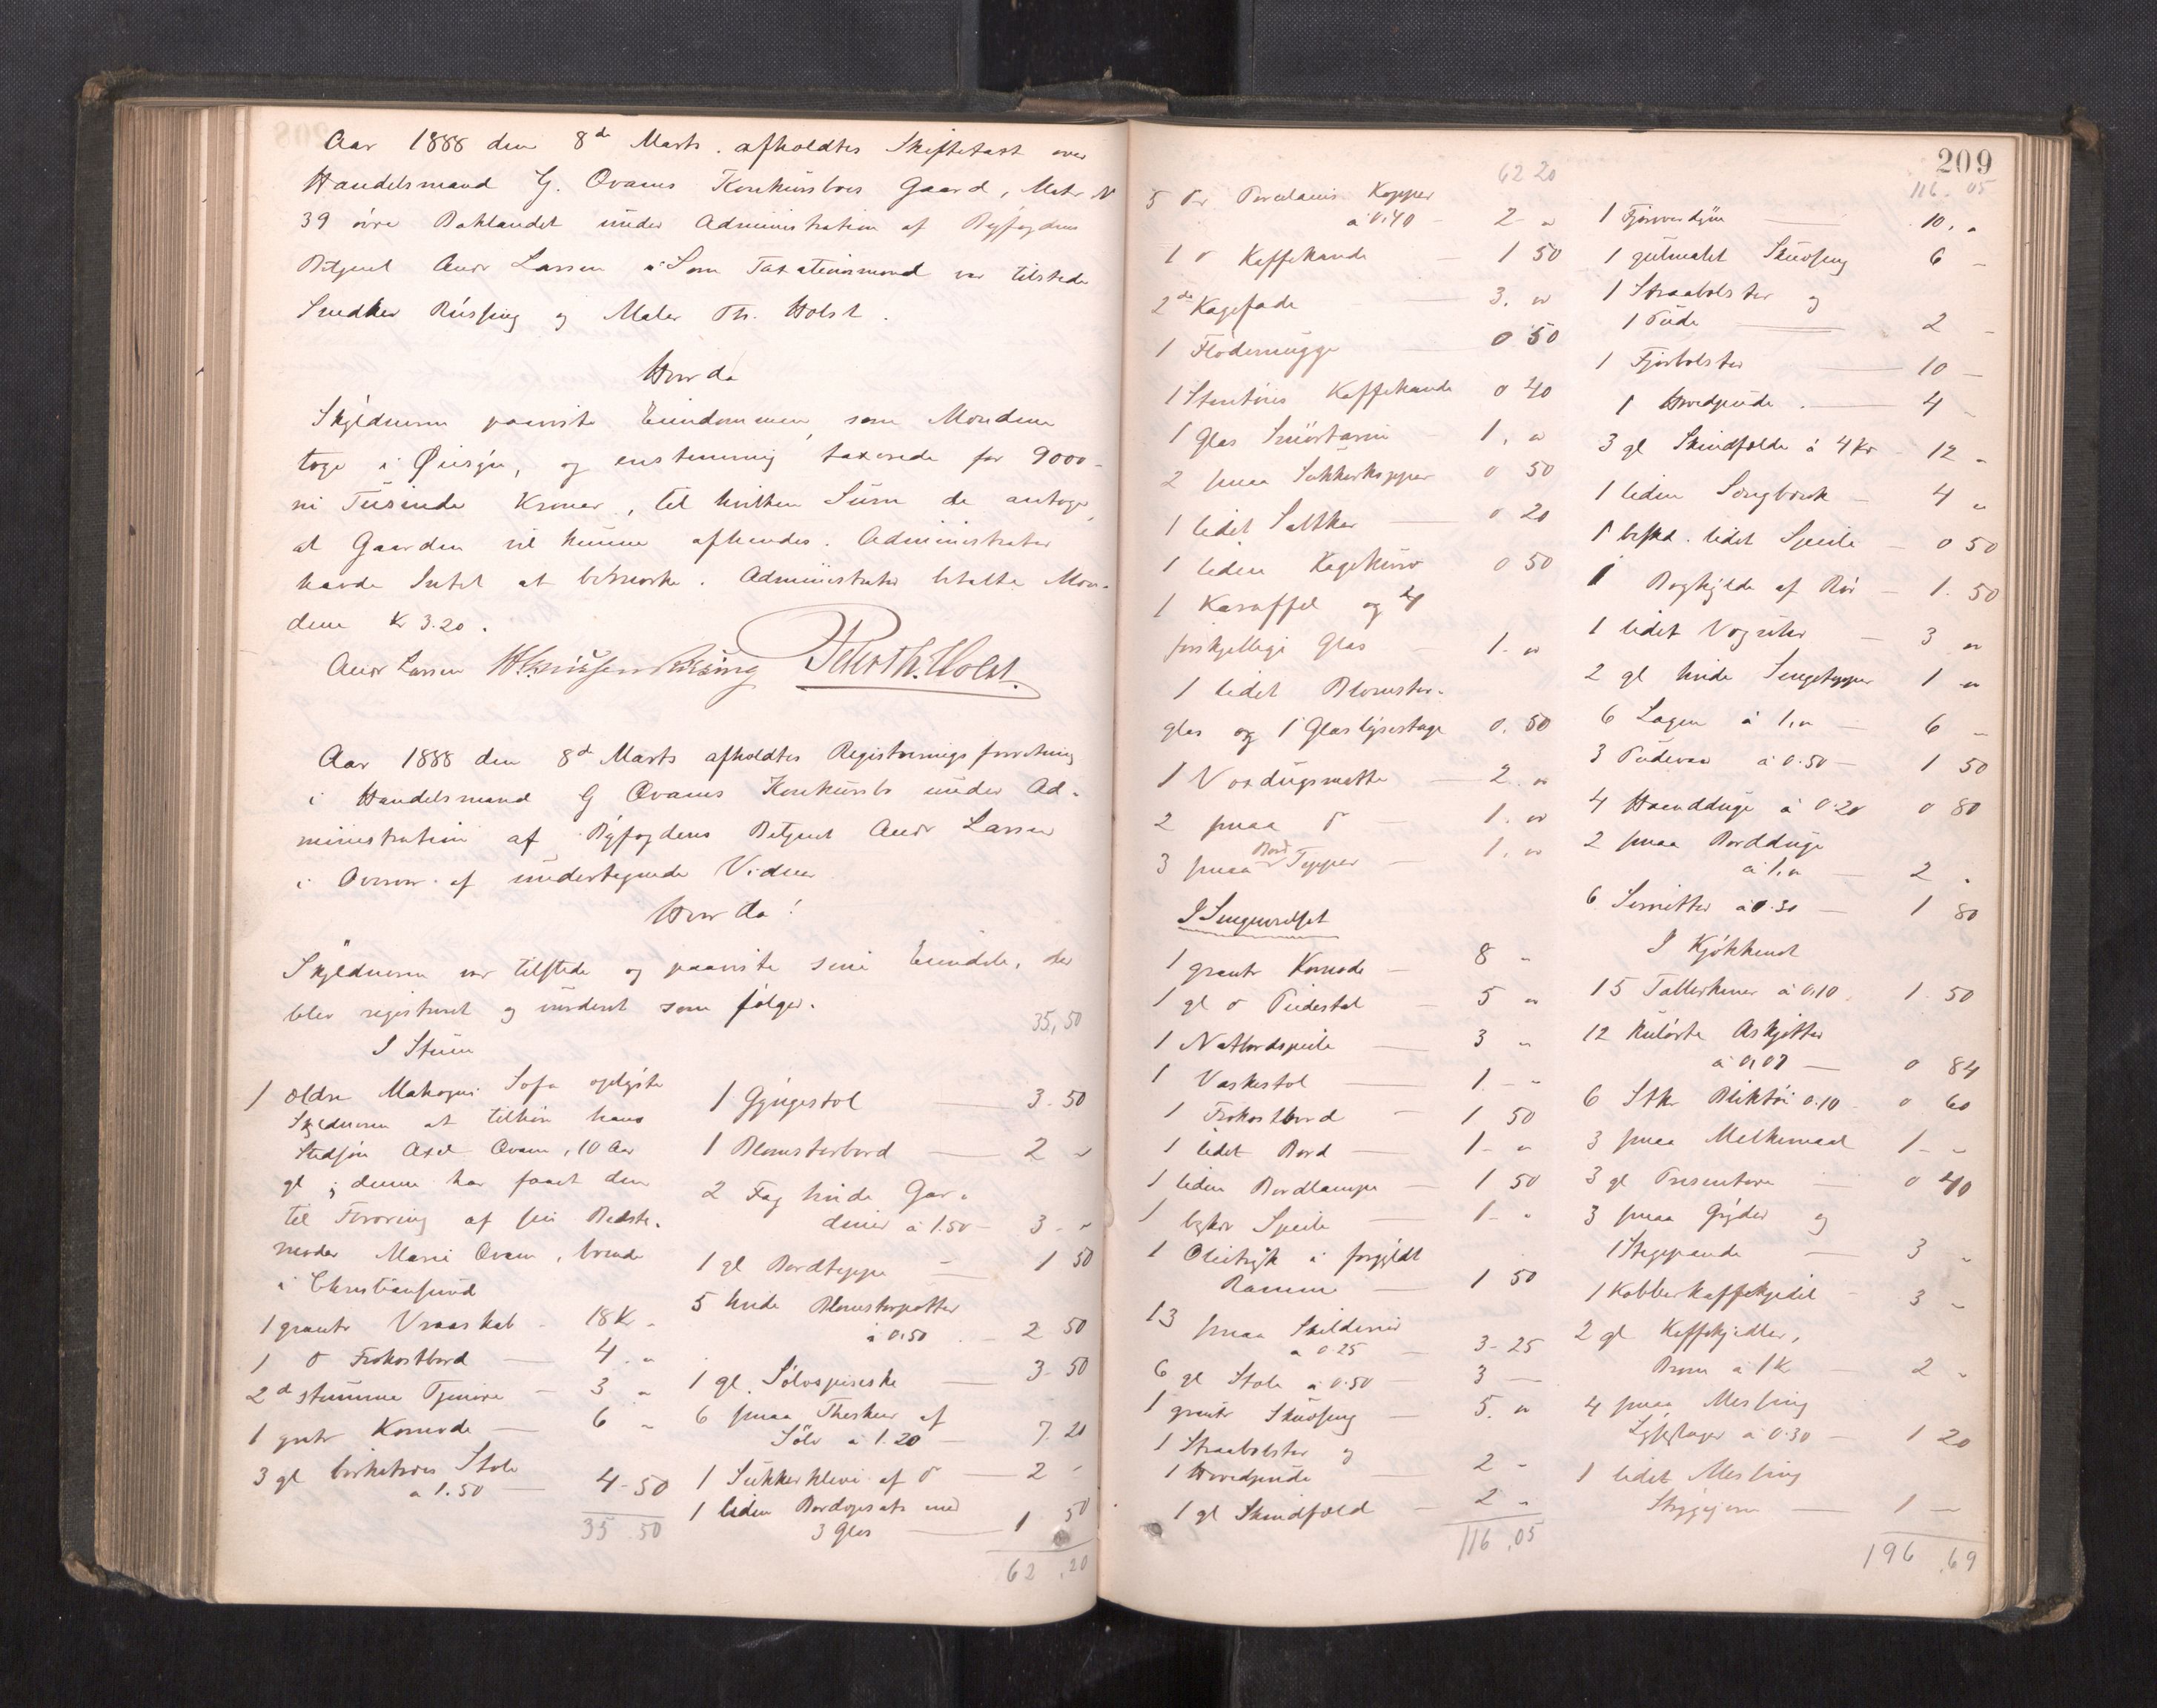 Aar 1888 den 8d Marts. afholdtes Skiftetaxt over
Handelsmand G. Qvams Konkursboes Gaard, Matr N
39 övre Baklandet under Administration af Byfogdens
Betjent Andr Larsen. Som Taxationsmænd var tilstede
Snedker Rüssing og Maler Th. Holst.
Hvor da
Skyldneren paaviste Eiendommen, som Mændene
toge i Öiesyn, og enstemmig taxerede for 9000-
ni Tusinde Kroner, til hvilken Sum de antoge,
at Gaarden vil kunne afhændes. Administrator
havde Intet at bemærke. Administrator betalte Mæn-
dene Kr 3.20.
Andr Larsen Peter Th. Holst.
Aar 1888 den 8d Marts afholdtes Registreringsforretning
i Handelsmand G Qvams Konkursbo under Ad-
ministration af Byfogdens Betjent Andr Larsen
i Overvær af undertegnede Vidner
Hvor da!
Skyldneren var tilstede og paaviste sine Eiendele, der
blev registreret og vurderet som følger.
I Stuen
1 ældre Mahogni Sofa oplyste
Skyldneren at tilhöre hans
Stedsön Axel Qvam, 10 Aar
gl; denne har faaet den
til Foræring af sin Bedste-
moder Marie Qvam, boende
i Christiansund
1 grantr Vraaskab - 18 Kr "
1 d Frokostbord — 4. "
2d stumme Tjenere — 3 "
1 grtr Komode — 6 "
3 gl birketræes Stole
a 1.50 — 4-50
35.50
35,50
1 Gyngestol — 3.50
1 Blomsterbord — 2 "
2 Fag hvide Gar-
diner á 1.50 — 3 - "
1 gl Bordteppe — 1 50
5 hvide Blomsterpotter
á 0.50 — 2 50
1 gl. Sölvspiseske — 3-50
6 smaa Theskeer af
Sölv á 1.20 — 7.20
1 Sukkerklype af d — 2 -
1 liden Bordopsats med
3 Glas — 1 50
62.20
209
62 20
5 Pr Porcelains Kopper
á 0.40 - 2 - "
1 d Kaffekande — 1 50
2 de Kagefade — 3. "
1 Flödemugge — 0 50
1 Stentöies Kaffekande 0 40
1 Glas Smörterrin — 1. "
2 smaa Sukkerkopper 0 50
1 lidet Saltkar — 0 20
1 liden Kagekurv 0 50
1 Karaffel og 4
forskjellige Glas — 1. "
1 lidet Blomster-
glas og 1 Glaslysestage 0. 50
1 Voxdugsmatte — 2. "
2 smaa d — 1. "
3 smaa Bord Tepper — 1. "
I Sengeværelset
1 grantr Komode — 8 "
1 gl d Piedestal — 5 "
1 Natbordspeile — 3 "
1 Vaskestol — 1. - "
1 Frokostbord — 1 50
1 lidet Bord — 1 - "
1 liden Bordlampe — 1 50
1 Speile — 1 - "
1 Olietryk i forgyldt
Ramme — 1 50
13 smaa Skilderier
a 0.25 — 3-25
6 gl Stole á 0.50 — 3 —
1 grantr Skuvseng — 5. "
1 Straabolster og
1 Hovedpude — 2 -
1 gl Skindfæld — 2 "
116.05
116.05
1 Fjærverdyne — 10. "
1 gulmalet Skuvseng 6 -
1 Straabolster og
1 Pude — 2 -
1 Fjærbolster — 10 -
1 Hovedpude — 4 -
3 gl Skindfælde á 4 Kr - 12 "
1 liden Sengbænk — 4 "
1 beskad. lidet Speile — 0 50
1 Boghylde af Rör — 1. 50
1 lidet Væguhr — 3 "
2 gl hvide Sengetepper 1 "
6 Lagen á 1," — 6 "
3 Pudevar á 0.50 — 1 50
4 Haandduge á 0.20 0 80
2 smaa Borduge
á 1," — 2 "
6 Servietter á 0.30 — 1 80
I Kjökkenet
15 Tallerkener á 0,10. 1. 50
12 Kulörte Asjetter
á 0,07 — 0 84
6 Stkr Bliktöi 0.10 0 60
3 smaa Melkemaal 1 - "
3 gl Presentere — 0 40
3 smaa Gryder og
1 Stegepande — 3 "
1 Kobberkaffekjedel — 3 "
2 gl Kaffekjedler,
á 1 K — 2 "
4 smaa Messing
Lysestager á 0.30 — 1 20
1 lidet Messing
Strygejern — 1 —
196.69